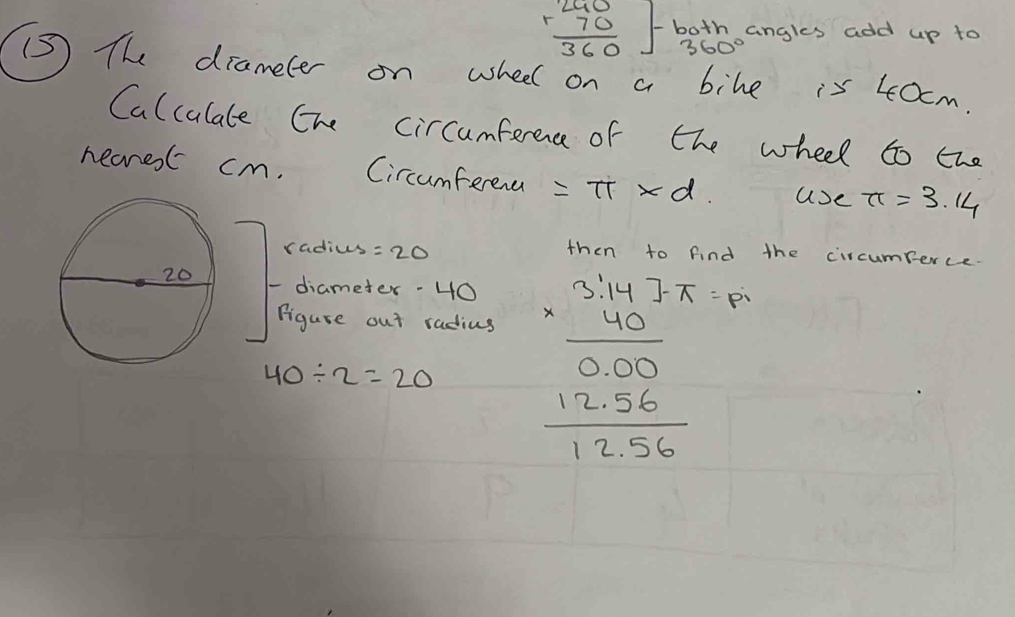 290
+ 70
360
- both angles add up to
360°
(15) The diameter on wheel on a bike is 40cm.
Calculate the circumference of the wheel to the
nearest cm. Circumference = π × d. use π = 3.14
20
radius = 20
- diameter - 40
figure out radius
40 ÷ 2 = 20
then to find the circumferce.
3.14 ]- π = pi
× 40
0.00
12.56
12.56